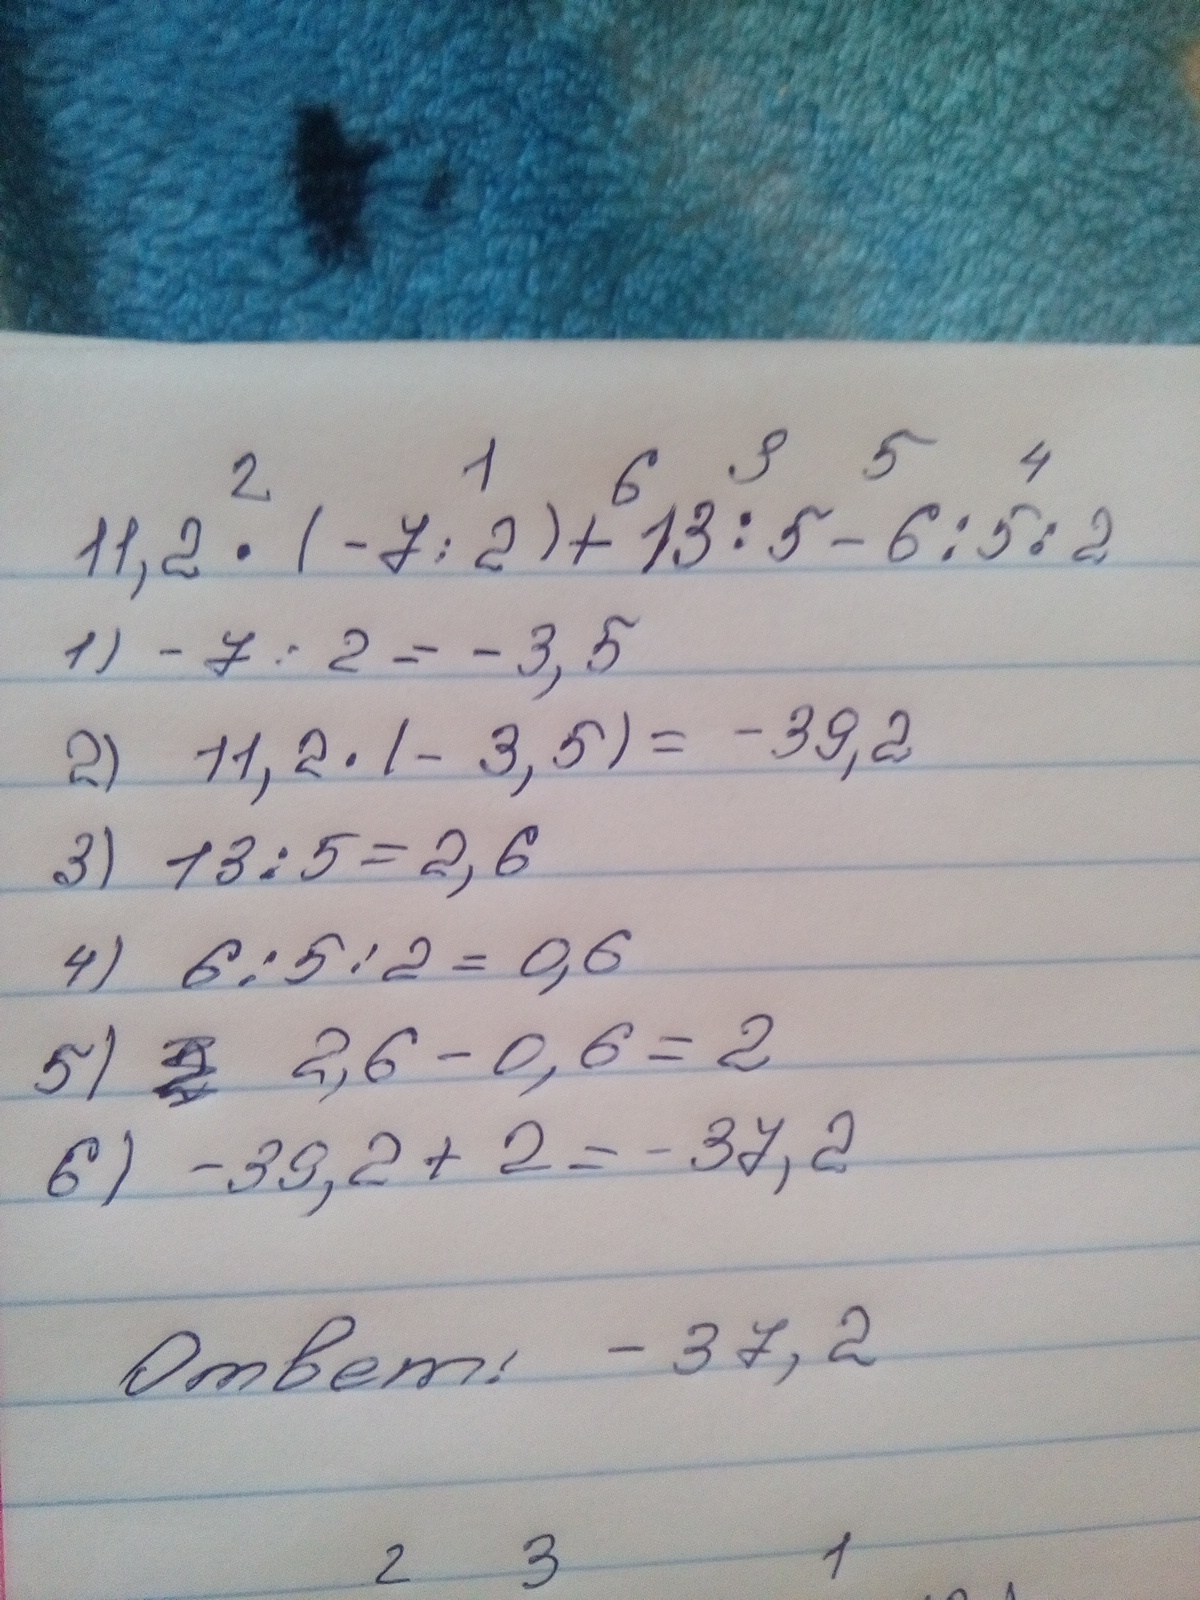 2 1 6 3 5 4
11,2 · (-7:2)+13:5-6:5:2
1) -7:2=-3,5
2) 11,2·(-3,5)=-39,2
3) 13:5=2,6
4) 6:5:2=0,6
5) 2,6-0,6=2
6) -39,2+2=-37,2
Ответ: -37,2
2 3 1